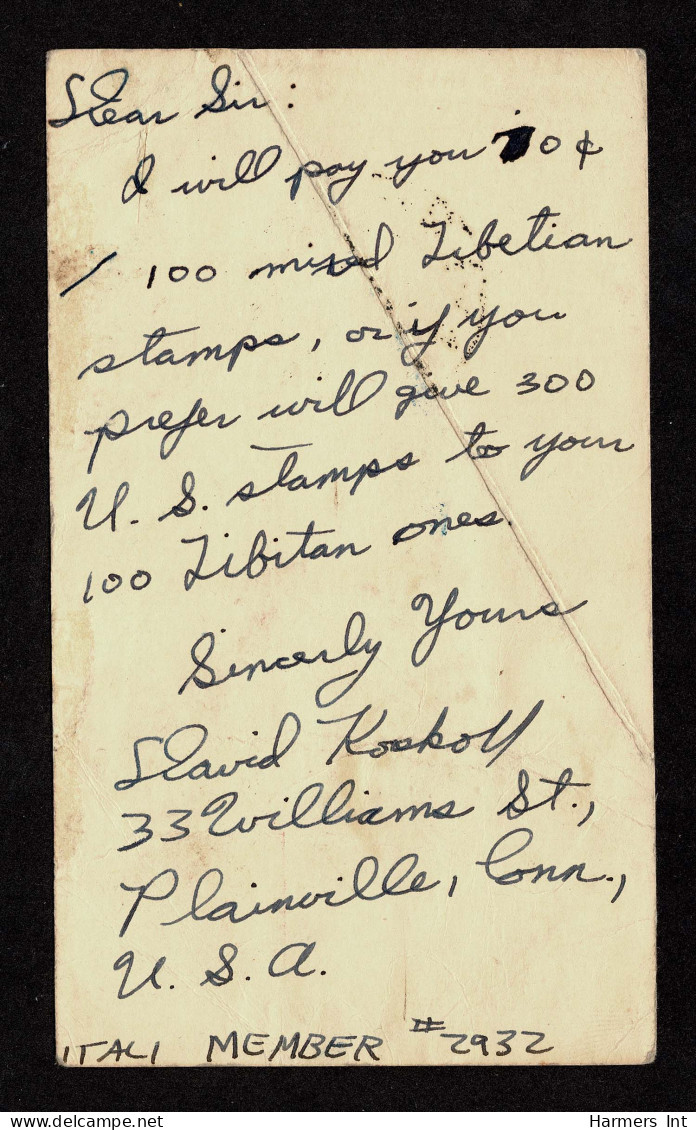 Dear Sir:
I will pay you 70¢
/ 100 mixed Tibetian
stamps, or if you
prefer will give 300
U. S. stamps to your
100 Tibitan ones.
Sincerly Yours
David Koskoff
33 Williams St.,
Plainville, Conn.,
U. S. A.
ITALI MEMBER #2932
delcampe.net
Harmers Int